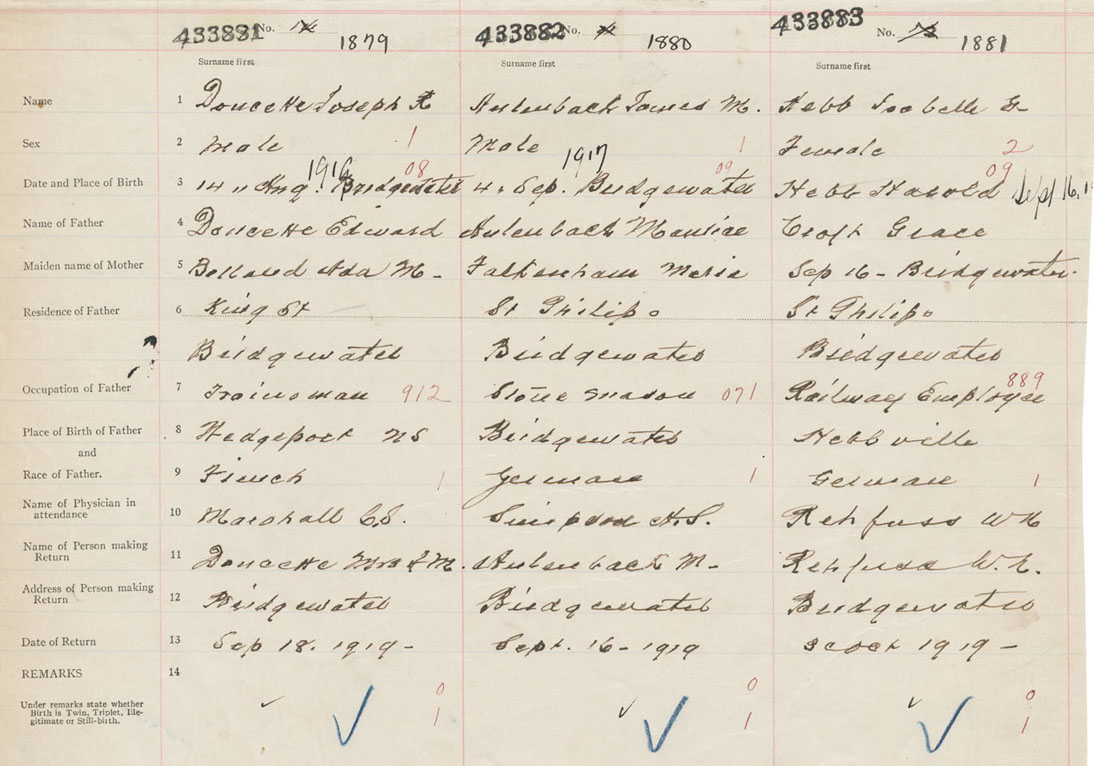 433881 No. 1879 433882 No. 1880 433883 No. 1881
Surname first Surname first Surname first
Name 1 Doucette Joseph Aulenback James M. Hebb Isabelle G
Sex 2 Male 1 Male 1 Female 2
1916 08 1917 09 09
Date and Place of Birth 3 14 " Aug. Bridgewater 4 " Sep. Bridgewater Hebb Harold Sept 16, 1
Name of Father 4 Doucette Edward Aulenback Maurice Croft Grace
Maiden name of Mother 5 Ada M- Falkenham Marie Sep 16 - Bridgewater.
Residence of Father 6 King St St Philips St Philips
Bridgewater Bridgewater Bridgewater
Occupation of Father 7 Trainsman 912 Stone mason 071 Railway Employee 889
Place of Birth of Father 8 Wedgeport NS Bridgewater Hebbville
and
Race of Father. 9 French 1 German 1 German 1
Name of Physician in
attendance 10 Marshall C.S. Simpson A.S. Rehfuss W N
Name of Person making
Return 11 Doucette Mrs M. Aulenback M- Rehfuss W. N.
Address of Person making
Return 12 Bridgewater Bridgewater Bridgewater
Date of Return 13 Sep 18. 1919 - Sept. 16 - 1919 Oct 1919 -
REMARKS 14
Under remarks state whether
Birth is Twin, Triplet, Ille-
gitimate or Still-birth.
0 0 0
1 1 1